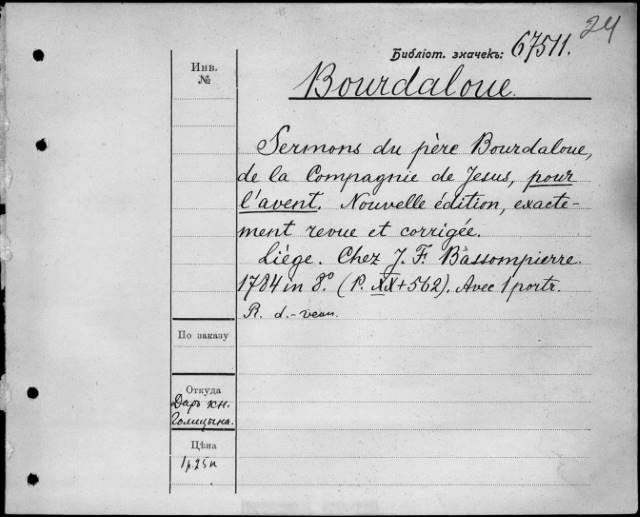 24
Библіот. значекъ: 67511.
Инв.
№
Bourdaloue.
Sermons du père Bourdaloue,
de la Compagnie de Jesus, pour
l'avent. Nouvelle édition, exacte-
ment revue et corrigée.
Liège. Chez J. F. Bassompierre.
1784 in 8.° (P. XX+562). Avec 1 portr.
R. d.-veau.
По заказу
Откуда
Даръ кн.
Голицына.
Цѣна
1р.25к